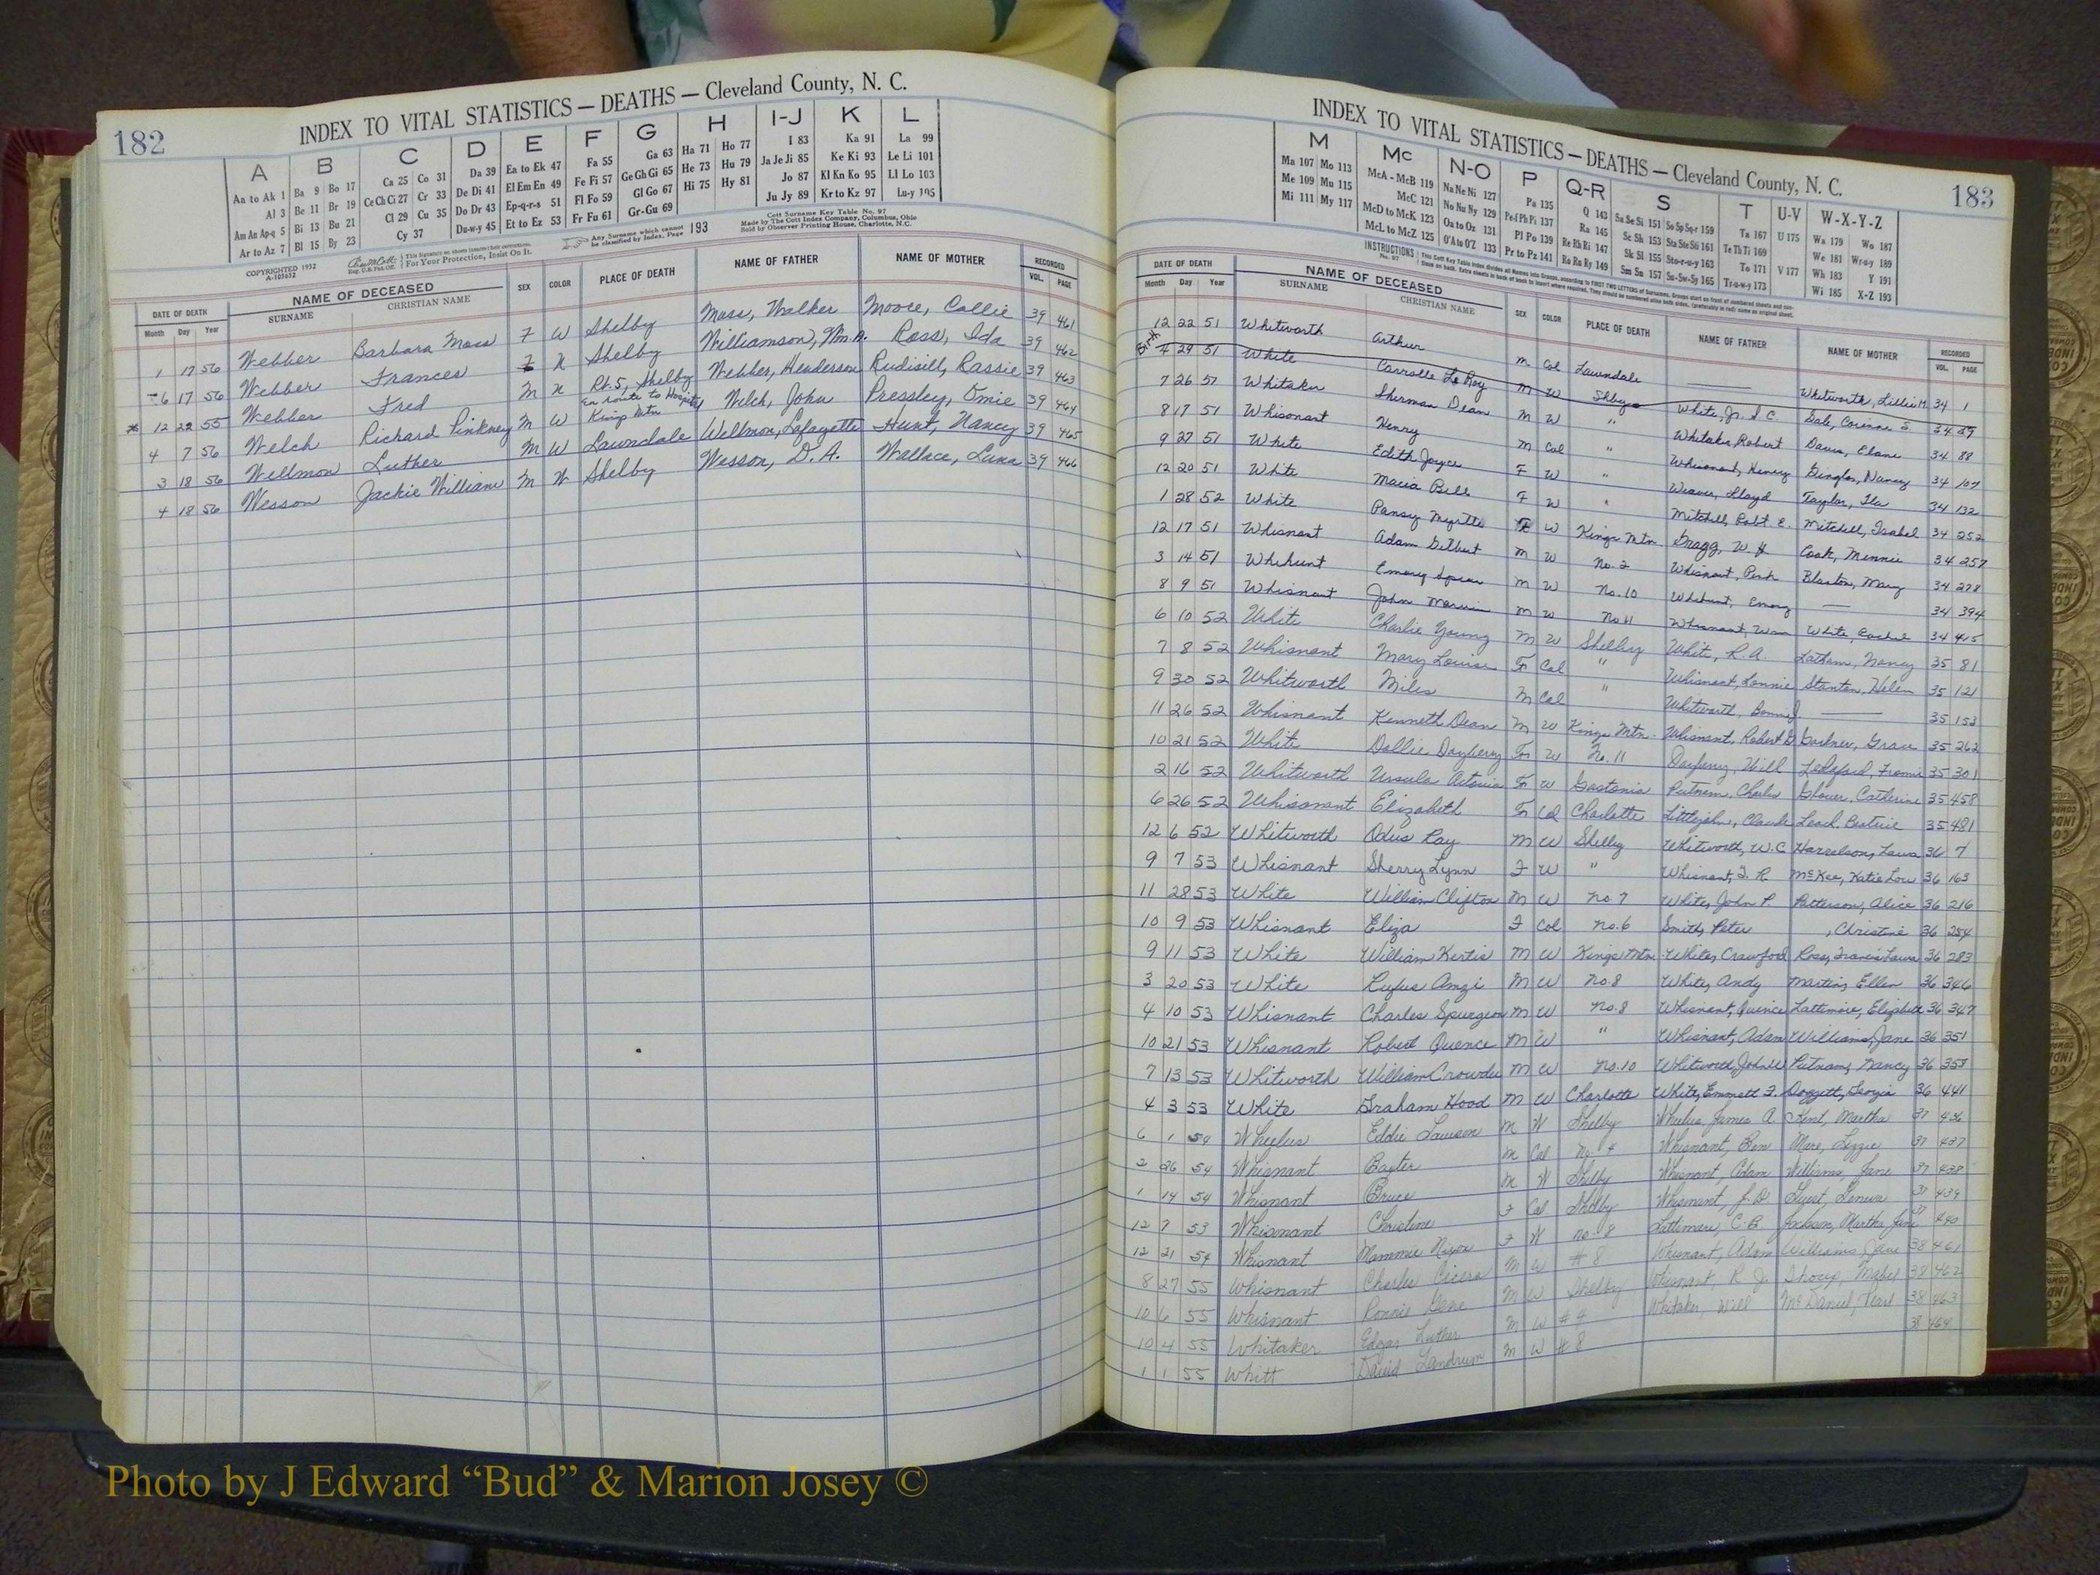 182
INDEX TO VITAL STATISTICS — DEATHS — Cleveland County, N. C.
A B C D E F G H I-J K L
Aa to Ak 1 Ba 9 Bo 17 Ca 25 Co 31 Da 39 Ea to Ek 47 Fa 55 Ga 63 Ha 71 Ho 77 I 83 Ka 91 La 99
Al 3 Be 11 Br 19 Ce Ch Ci 27 Cr 33 De Di 41 El Em En 49 Fe Fi 57 Ge Gh Gi 65 He 73 Hu 79 Ja Je Ji 85 Ke Ki 93 Le Li 101
Am An Ap-q 5 Bi 13 Bu 21 Cl 29 Cu 35 Do Dr 43 Ep-q-r-s 51 Fl Fo 59 Gl Go 67 Hi 75 Hy 81 Jo 87 Kl Kn Ko 95 Ll Lo 103
Ar to Az 7 Bl 15 By 23 Cy 37 Du-w-y 45 Et to Ez 53 Fr Fu 61 Gr-Gu 69 Ju Jy 89 Kr to Kz 97 Lu-y 105
COPYRIGHTED 1932
Any Surname which cannot be classified by Index, Page 193
Cott Surname Key Table No. 97
Made by The Cott Index Company, Columbus, Ohio
Sold by Observer Printing House, Charlotte, N.C.
This Signature on sheets insures their correctness.
For Your Protection, Insist On It.
DATE OF DEATH NAME OF DECEASED SEX COLOR PLACE OF DEATH NAME OF FATHER NAME OF MOTHER RECORDED
Month Day Year SURNAME CHRISTIAN NAME VOL. PAGE
1 17 56 Webber Barbara Moss F W Shelby Moss, Walker Moore, Callie 39 461
6 17 56 Webber Frances F N Shelby Williamson, Wm. A. Ross, Ida 39 462
12 22 55 Webber Fred M N Rt. 5, Shelby Webber, Henderson Rudisill, Rassie 39 463
4 7 56 Welch Richard Pinkney M W En route to Hospital Kings Mtn Welch, John Pressley, Omie 39 464
3 18 56 Wellmon Luther M W Lawndale Wellmon, Lafayette Hunt, Nancy 39 465
4 18 56 Wesson Jackie William M W Shelby Wesson, D. A. Wallace, Luna 39 466
183
INDEX TO VITAL STATISTICS — DEATHS — Cleveland County, N. C.
M Mc N-O P Q-R S T U-V W-X-Y-Z
Ma 107 Mo 113 McA - McB 119 Na Ne Ni 127 Pa 135 Q 143 Sa Se Si 151 So Sp Sq-r 159 Ta 167 U 175 Wa 179 Wo 187
Me 109 Mu 115 McC 121 No Nu Ny 129 Pe-f Ph Pi 137 Ra 145 Sc Sh 153 Sta Ste Sti 161 Te Th Ti 169 We 181 Wr-u-y 189
Mi 111 My 117 McD to McK 123 Oa to Oz 131 Pl Po 139 Re Rh Ri 147 Sk Sl 155 Sto-r-u-y 163 To 171 V 177 Wh 183 Y 191
McL to McZ 125 O'A to O'Z 133 Pr to Pz 141 Ro Ru Ry 149 Sm Sn 157 Su-Sw-Sy 165 Tr-u-w-y 173 Wi 185 X-Z 193
INSTRUCTIONS No. 97
DATE OF DEATH NAME OF DECEASED SEX COLOR PLACE OF DEATH NAME OF FATHER NAME OF MOTHER RECORDED
Month Day Year SURNAME CHRISTIAN NAME VOL. PAGE
12 22 51 Whitworth Arthur M Col Lawndale — Whitworth, Lillie M. 34 1
Birth 4 29 51 White Carrolle Le Roy M W Shelby White, Jr. S. C. Gale, Corinne S. 34 29
7 26 51 Whitaker Sherman Dean M W " Whitaker, Robert Davis, Elane 34 88
8 17 51 Whisonant Henry M Col " Whisonant, Henry Gingles, Nancy 34 107
9 27 51 White Edith Joyce F W " Weaver, Lloyd Taylor, Ila 34 132
12 20 51 White Macia Bell F W " Mitchell, Robt. E. Mitchell, Isabel 34 252
1 28 52 White Pansy Myrtle F W Kings Mtn Gragg, W. H. Cook, Minnie 34 257
12 17 51 Whisnant Adam Gilbert M W No. 2 Whisnant, Pink Blanton, Mary 34 278
3 14 51 Whihunt Emory M W No. 10 Whihunt, Emory — 34 394
8 9 51 Whisnant John Marvin M W No 11 Whisnant, Wm White, Rachel 34 415
6 10 52 White Charlie Young M W Shelby White, R. A. Latham, Nancy 35 81
7 8 52 Whisnant Mary Louise F Col " Whisnant, Lonnie Stanton, Helen 35 121
9 30 52 Whitworth Miles M Col " Whitworth, Bonnie J — 35 153
11 26 52 Whisnant Kenneth Dean M W Kings Mtn. Whisnant, Robert D Gardner, Grace 35 262
10 21 52 White Dollie Dayberry F W No. 11 Dayberry, Will Ledford, Fannie 35 301
2 16 52 Whitworth Ursula F W Gastonia Putnam, Charles Glover, Catherine 35 458
6 26 52 Whisonant Elizabeth F Col Charlotte Littlejohn, Claude Leach, Beatrice 35 481
12 6 52 Whitworth Odus Ray M W Shelby Whitworth, W. C. Harrelson, Laura 36 7
9 7 53 Whisnant Sherry Lynn F W " Whisnant, T. R. McKee, Katie Lou 36 163
11 28 53 White William Clifton M W No. 7 White, John P. Patterson, Alice 36 216
10 9 53 Whisnant Eliza F Col No. 6 Smith, Peter , Christine 36 254
9 11 53 White William Kertis M W Kings Mtn. White, Crawford Ross, Francis Laura 36 283
3 20 53 White Rufus Amzi M W No. 8 White, Andy Martin, Ellen 36 346
4 10 53 Whisnant Charles Spurgeon M W No. 8 Whisnant, Quence Lattimore, Elizabeth 36 347
10 21 53 Whisnant Robert Quence M W " Whisnant, Adam Williams, Jane 36 351
7 13 53 Whitworth William Crowder M W No. 10 Whitworth, John W Putnam, Nancy 36 357
4 3 53 White Graham Hood M W Charlotte White, Emmett F. Doggett, Georgia 36 441
6 1 54 Wheelus Eddie Lawson M W Shelby Wheelus, James A Kent, Martha 37 436
2 26 54 Whisnant Baxter M Col No. 4 Whisnant, Ben Mare, Lizzie 37 437
1 14 54 Whisnant Bruce M W Shelby Whisnant, Adam Williams, Jane 37 438
12 7 53 Whisonant Christine F Col Shelby Whisonant, J. D. 37 439
12 21 54 Whisnant Mammie Nixon F W No. 8 Lattimore, C. C. Jackson, Martha Jane 37 440
8 27 55 Whisnant Charles Cicero M W # 8 Whisnant, Adam Williams, Jane 38 461
10 6 55 Whisnant Ronnie Gene M W Shelby Whisnant, R. J. Thorp, Mabel 38 462
10 4 55 Whitaker Edgar Luther M W # 4 Whitaker, Will McDaniel, Pearl 38 463
1 1 55 Whitt David Landrum M W # 8 38 464
Photo by J Edward “Bud” & Marion Josey ©